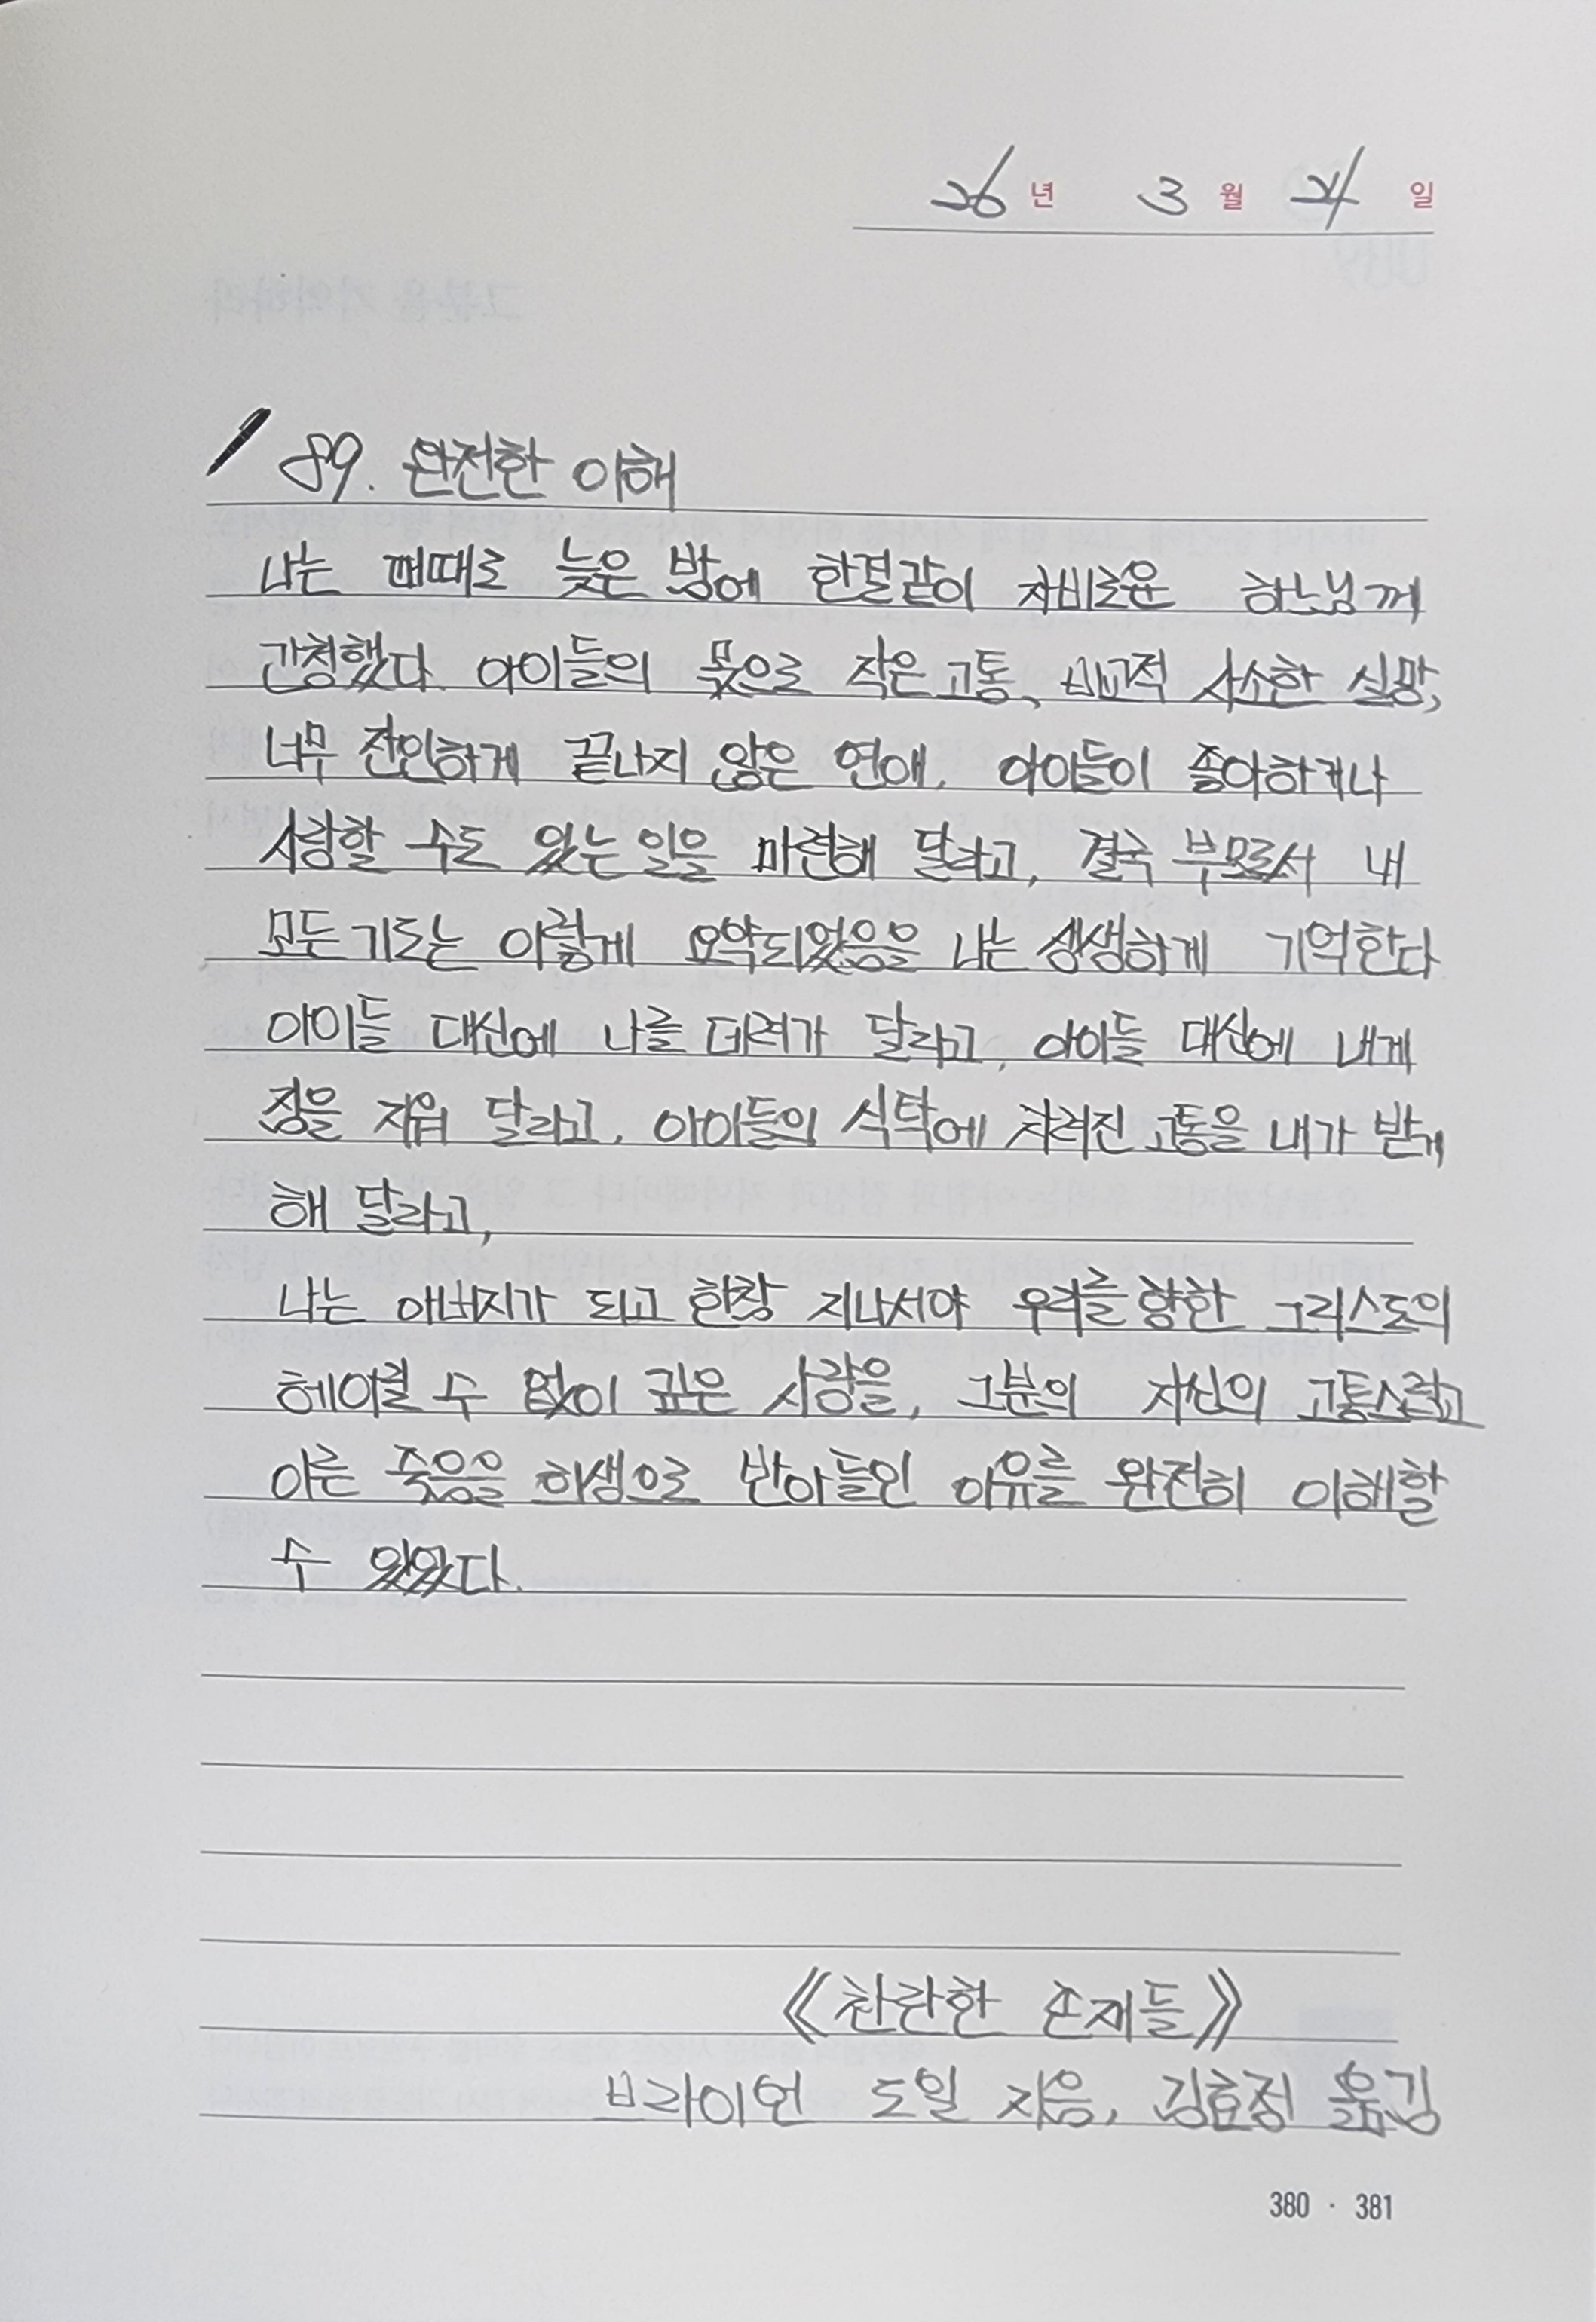 26년 3월 24일
89. 완전한 이해
나는 때때로 늦은 밤에 한결같이 자비로운 하느님께
간청했다. 아이들의 몫으로 작은 고통, 비교적 사소한 실망,
너무 잔인하게 끝나지 않은 연애, 아이들이 좋아하거나
사랑할 수도 있는 일을 마련해 달라고, 결국 부모로서 내
모든 기도는 이렇게 요약되었음을 나는 생생하게 기억한다
아이들 대신에 나를 데려가 달라고, 아이들 대신에 내게
짐을 지워 달라고, 아이들의 식탁에 차려진 고통을 내가 받게
해 달라고,
나는 아버지가 되고 한참 지나서야 우리를 향한 그리스도의
헤아릴 수 없이 깊은 사랑을, 그분의 자신의 고통스럽고
이른 죽음을 희생으로 받아들인 이유를 완전히 이해할
수 있었다.
《찬란한 존재들》
브라이언 도일 지음, 김효정 옮김
380 · 381